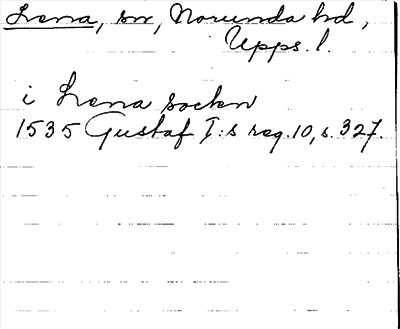 Lena, sn, Norunda hd,
Upps. l.
i Lena socken
1535 Gustaf I:s reg. 10, s. 327.